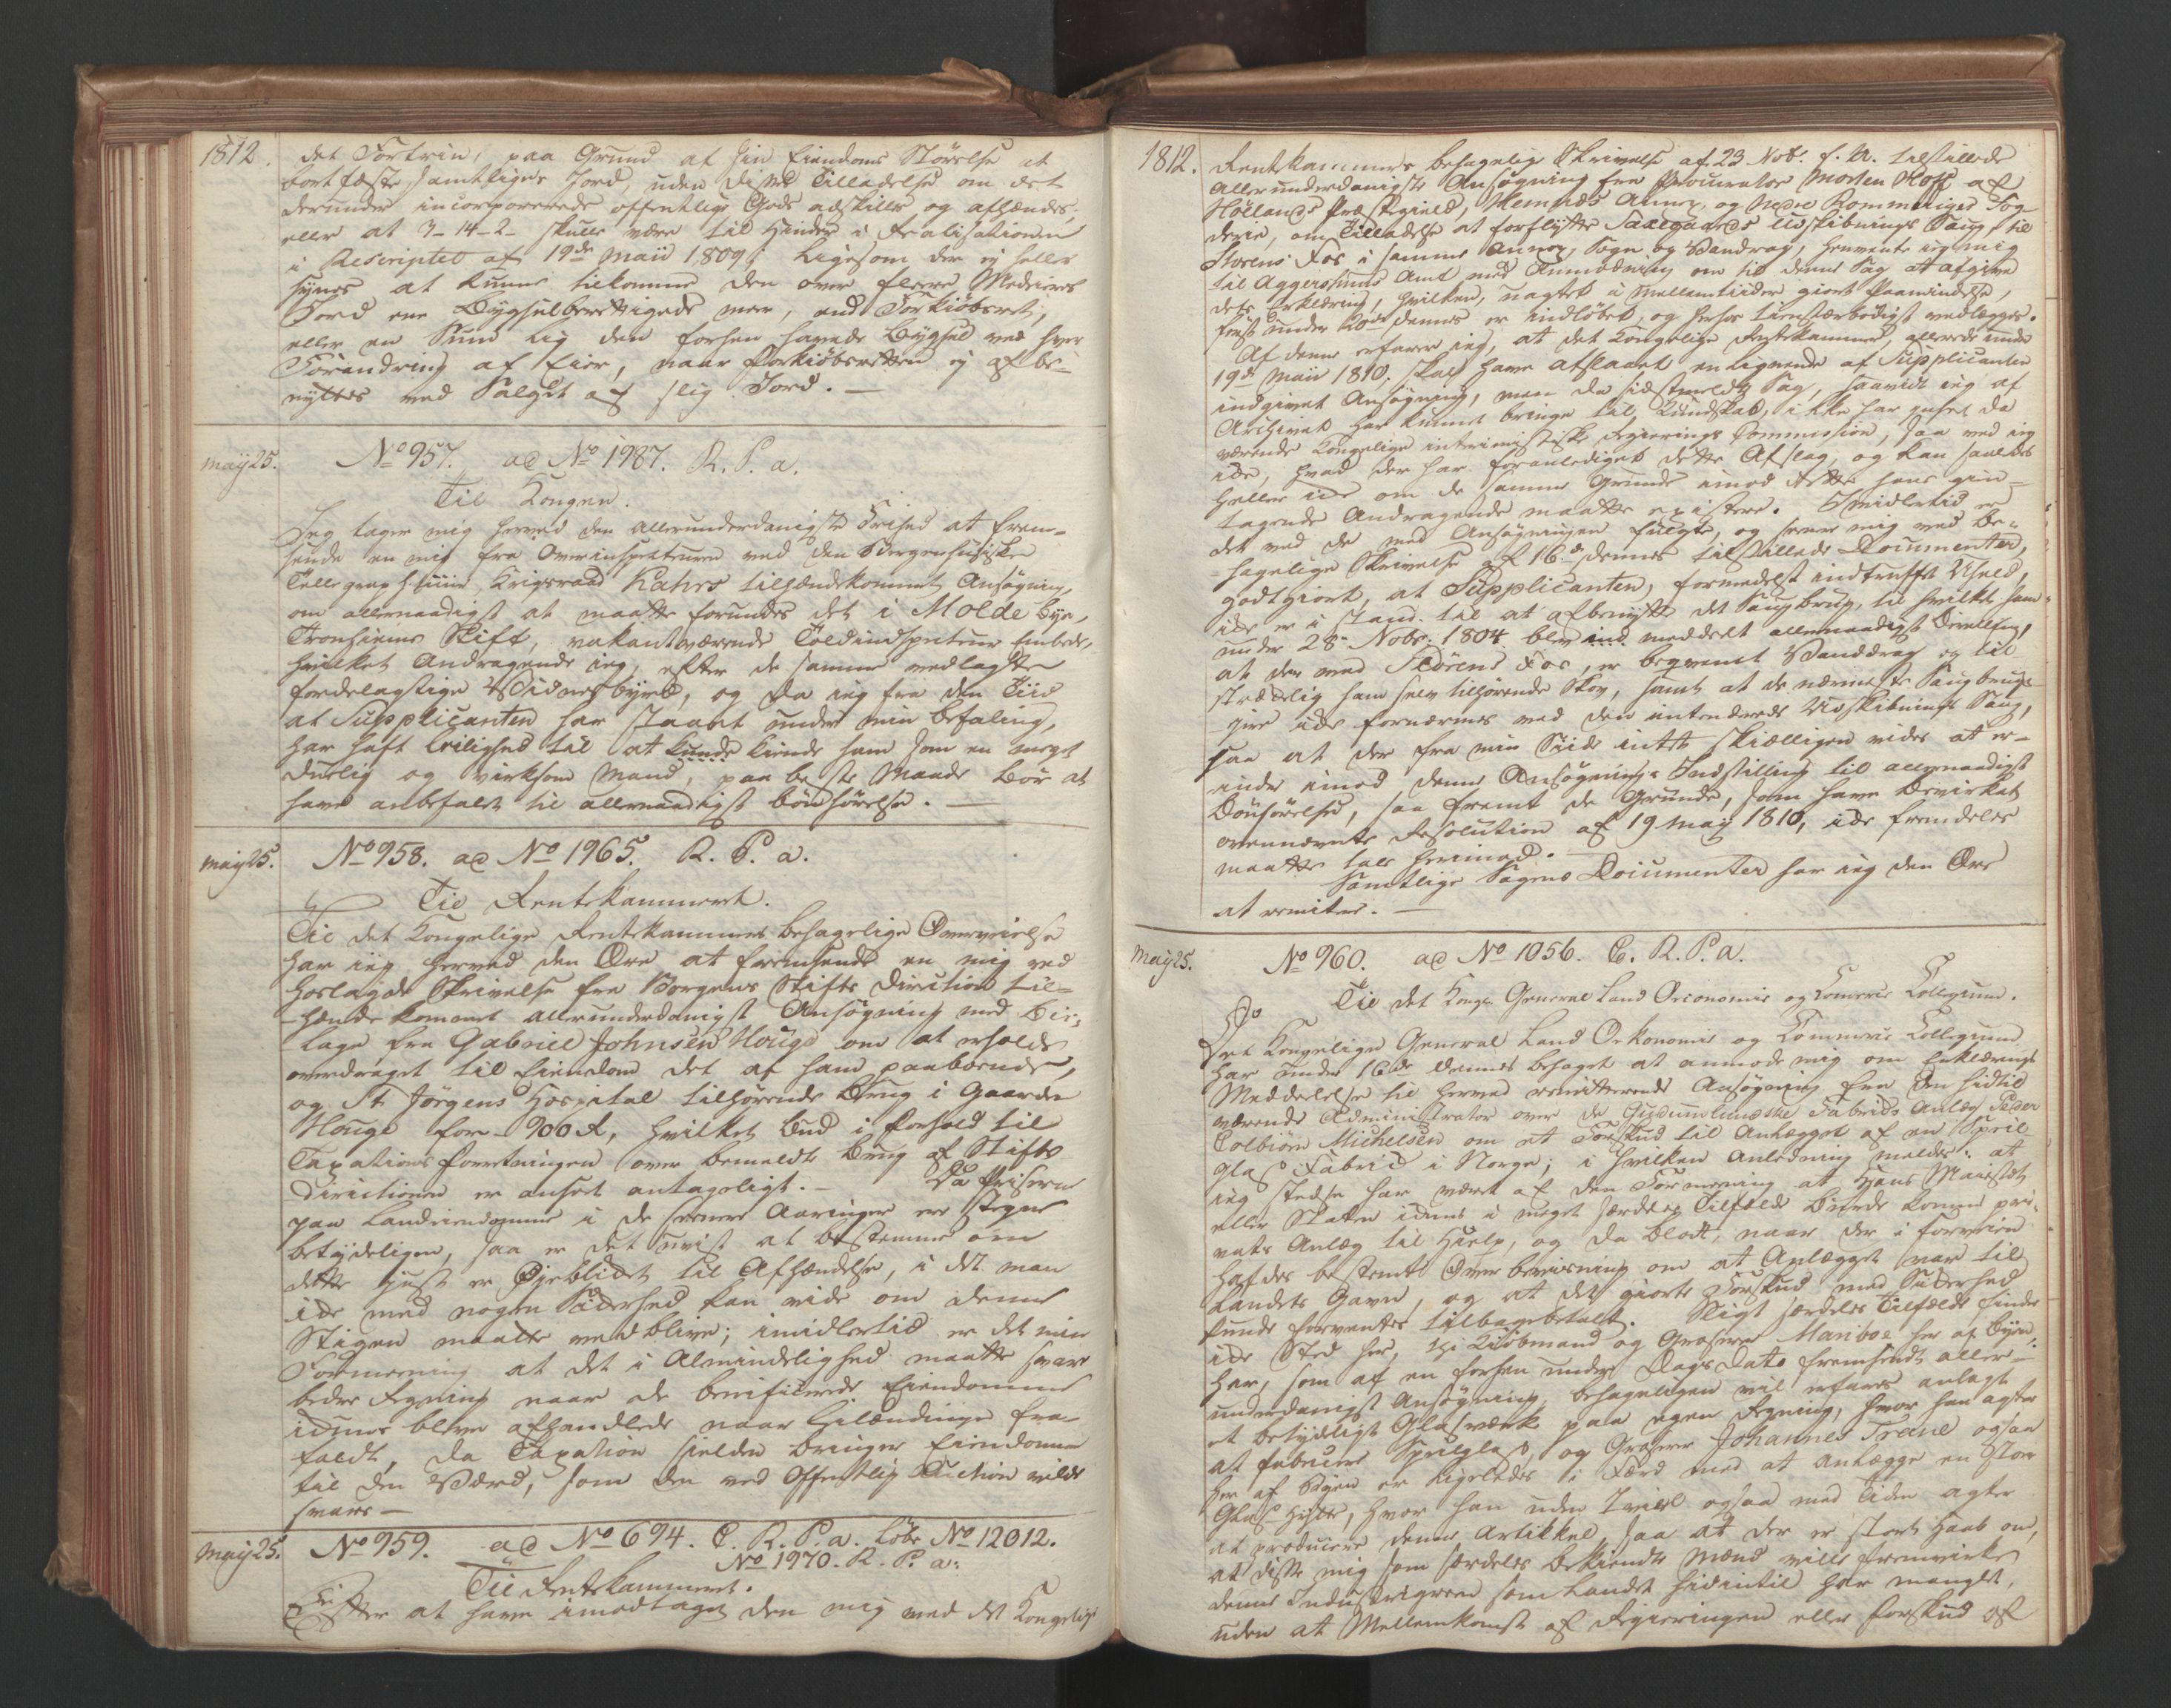 1812.
det Fortrin, paa Grund af sin Eiendoms Störelse at
bortfæste samtlige Jord, uden disses Tilladelse om det
derunder incorporerede offentlige Gods adskilles og afhændes,
eller at 3-14-2- skulle være til Hinder i Realisationen
i Rescriptet af 19de Maii 1809; ligesom der ej heller
synes at kunne tilkomme den over fleere Medeieres
Jord ene Bygselberettigede meer, end Forkiöbsret,
eller en Sum lig den forhen havede Bygsel ved hver
Forandring af Eier, naar Forkiöbsretten ej afbe-
nyttes ved Salget af slig Jord. —
May 25.
No 957. ad No 1987. R. P. a.
Til Kongen.
Jeg tager mig herved den allerunderdanigste Frihed at frem-
sende en mig fra Overinspecteuren ved den Bergenhusiske
Tellegraph Linie, Krigsraad Kahrs tilhændekommet Ansögning,
om allernaadigst at maatte forundes det i Molde Bye,
Tronhiems Stift, vakantværende Toldinspecteur Embede,
hvilket Andragende jeg, efter de samme vedlagte
fordelagtige Vidnesbyrd, og da jeg fra den Tiid
at Supplicanten har staaet under min Befaling,
har haft Leilighed til at kunde kiende ham som en meget
duelig og virksom Mand, paa beste Maade bör at
have anbefalet til allernaadigst Bönhörelse. —
May 25.
No 958. ad No 1965. R. P. a.
Til Rentekammeret.
Til det Kongelige Rentekammers behagelige Overveielse
har jeg herved den Ære at fremsende en mig ved
hoslagde Skrivelse fra Bergens Stifts Direction til-
hænde kommet allerunderdanigst Ansögning med Bi-
lage fra Gabriel Johnsen Houge om at erholde
overdraget til Eiendom det af ham paaboende,
og St Jörgens Hospital tilhörende Brug i Gaarden
Houge for 900 rd, hvilket Bud i Forhold til
Taxations forretningen over bemeldte Brug af Stifts
Directionen er anseet antageligt. — Da Priserne
paa Landeiendomme i de seenere Aaringer ere stegne
betydeligen, saa er det uvist at bestemme om
dette just er Öjeblikket til Afhændelse, i det man
ikke med nogen Sikerhed kan vide om denne
Stigen maatte vedblive; imidlertid er det min
Formening at det i Almindelighed maatte svare
bedre Regning naar de beneficerede Eiendomme
ikkun bleve afhandlede naar Leilændinge fra-
faldt, da Taxation sielden bringer Eiendomme
til den Værd, som den ved Offentlig Auction vilde
svare —
May 25.
No 959. ad No 694. C. R. P. a. Löbe No 12012.
No 1970. R. P. a.
Til Rentekammeret.
Efter at have imodtaget den mig med det Kongelige
1812.
Rentekammers behagelige Skrivelse af 23 Nobr. f. A. tilstillede
allerunderdanigste Ansögning fra Procurator Morten Hoff af
Hölands Præstegield, Hemnæs Annex, og Nedre Rommeriges Fog-
derie, om Tilladelse at forflytte Taxegaards Udskibnings Saug til
Florens Fos i samme Annex, Sogn og Vandrag, henvente jeg mig
til Aggershuus Amt med Anmodning om til denne Sag at afgive
dets Erklæring, hvilken, uagtet i Mellemtiider giort Paamindelse,
først under 20de dennes er indlöbet, og herhos tienstærbödigst vedlægges.
Af denne erfarer jeg, at det Kongelige Rentekammer, allerede under
19de Maii 1810, skal have afslaaet en lignende af Supplicanten
indgivet Ansögning, men da sidstmeldte Sag, saavidt jeg af
Archivet har kunnet bringe til Kundskab, ikke har passeret da
værende Kongelige interimistiske Regierings Commission, saa ved jeg
ikke, hvad der har foranlediget dette Afslag, og kan saaledes
heller ikke om de samme Grunde imod dette hans gien-
tagende Andragende maatte existere. Imidlertid er
det ved de med Ansögningen fulgte, og senere mig ved be-
hagelige Skrivelse af 16de dennes tilstillede Documenter,
godtgiort, at Supplicanten, formedelst indtruffet Uheld,
ikke er i stand til at afbenytte det Saugbrug, til hvilket ham
under 28de Nobr. 1804 blev meddeelt allernaadigst Bevilling,
at der ved Florens Fos, er beqvemt Vanddrag og til
strækkelig ham selv tilhørende Skov, samt at de nærmeste Saugbrugs-
eiere ikke fornærmes ved den intenderede Udskibnings Saug,
saa at der fra min Side intet skielligen vides at er-
indre imod denne Ansögnings Indstilling til allernaadigst
Bönhörelse, saafremt de Grunde, som have bevirket
ovennævnte Resolution af 19 May 1810, ikke fremdeles
maatte tale herimod.
Samtlige Sagens Documenter har jeg den Ære
at remittere. —
May 25.
No 960. ad No 1056. C. R. P. a.
Til det Kongl. General Land Oeconomie og Commerce Collegium.
Det Kongelige General Land Oekonomie og Commerce Collegium
har under 16de dennes behaget at anmode mig om Erklærings
Meddelelse til herved remitterende Ansögning fra den hidtil
værende Administrator over de Gudumlundske Fabriks Anlæg Peder
Colbiörn Michelsen om et Forskud til Anlægget af en Speil
glas Fabrik i Norge; i hvilken Anledning meldes: at
jeg stedse har været af den Formening at Hans Maiestæt
eller Staten ikkuns i meget særdeles Tilfælde burde komme pri-
vate Anlæg til Hielp, og da blott, naar der i Forveien
hafdes bestemt Overbeviisning om at Anlægget var til
Landets Gavn, og at det giorte Forskud med Sikerhed
kunde forventes tilbagebetalt. Sligt særdeles Tilfælde finder
ikke Sted her, thi Kiöbmand og Grosserer Mariboe her af Byen
har, som af en forhen under Dags Dato fremsendt aller-
underdanigst Ansögning behageligen vil erfares anlagt
et betydeligt Glasværk paa egen Regning, hvor han agter
at fabricere Speilglas, og Grosserer Johannes Trane ogsaa
her af Byen er ligeledes i Færd med at anlægge en stor
Glas Hytte, hvor han uden Tvivl ogsaa med Tiden agter
at producere denne Artikkel, saa at der er stort Haab om,
at disse mig som særdeles bekiendte Mænd ville fremvirke
denne Industriegreen som Landet hidindtil har manglet,
uden at Mellemkomst af Regieringen eller Forskud af